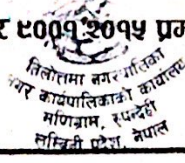 र ९००१:२०१५ प्रम
तिलोत्तमा नगरपालिका
नगर कार्यपालिकाको कार्यालय
मणिग्राम, रुपन्देही
लुम्बिनी प्रदेश, नेपाल